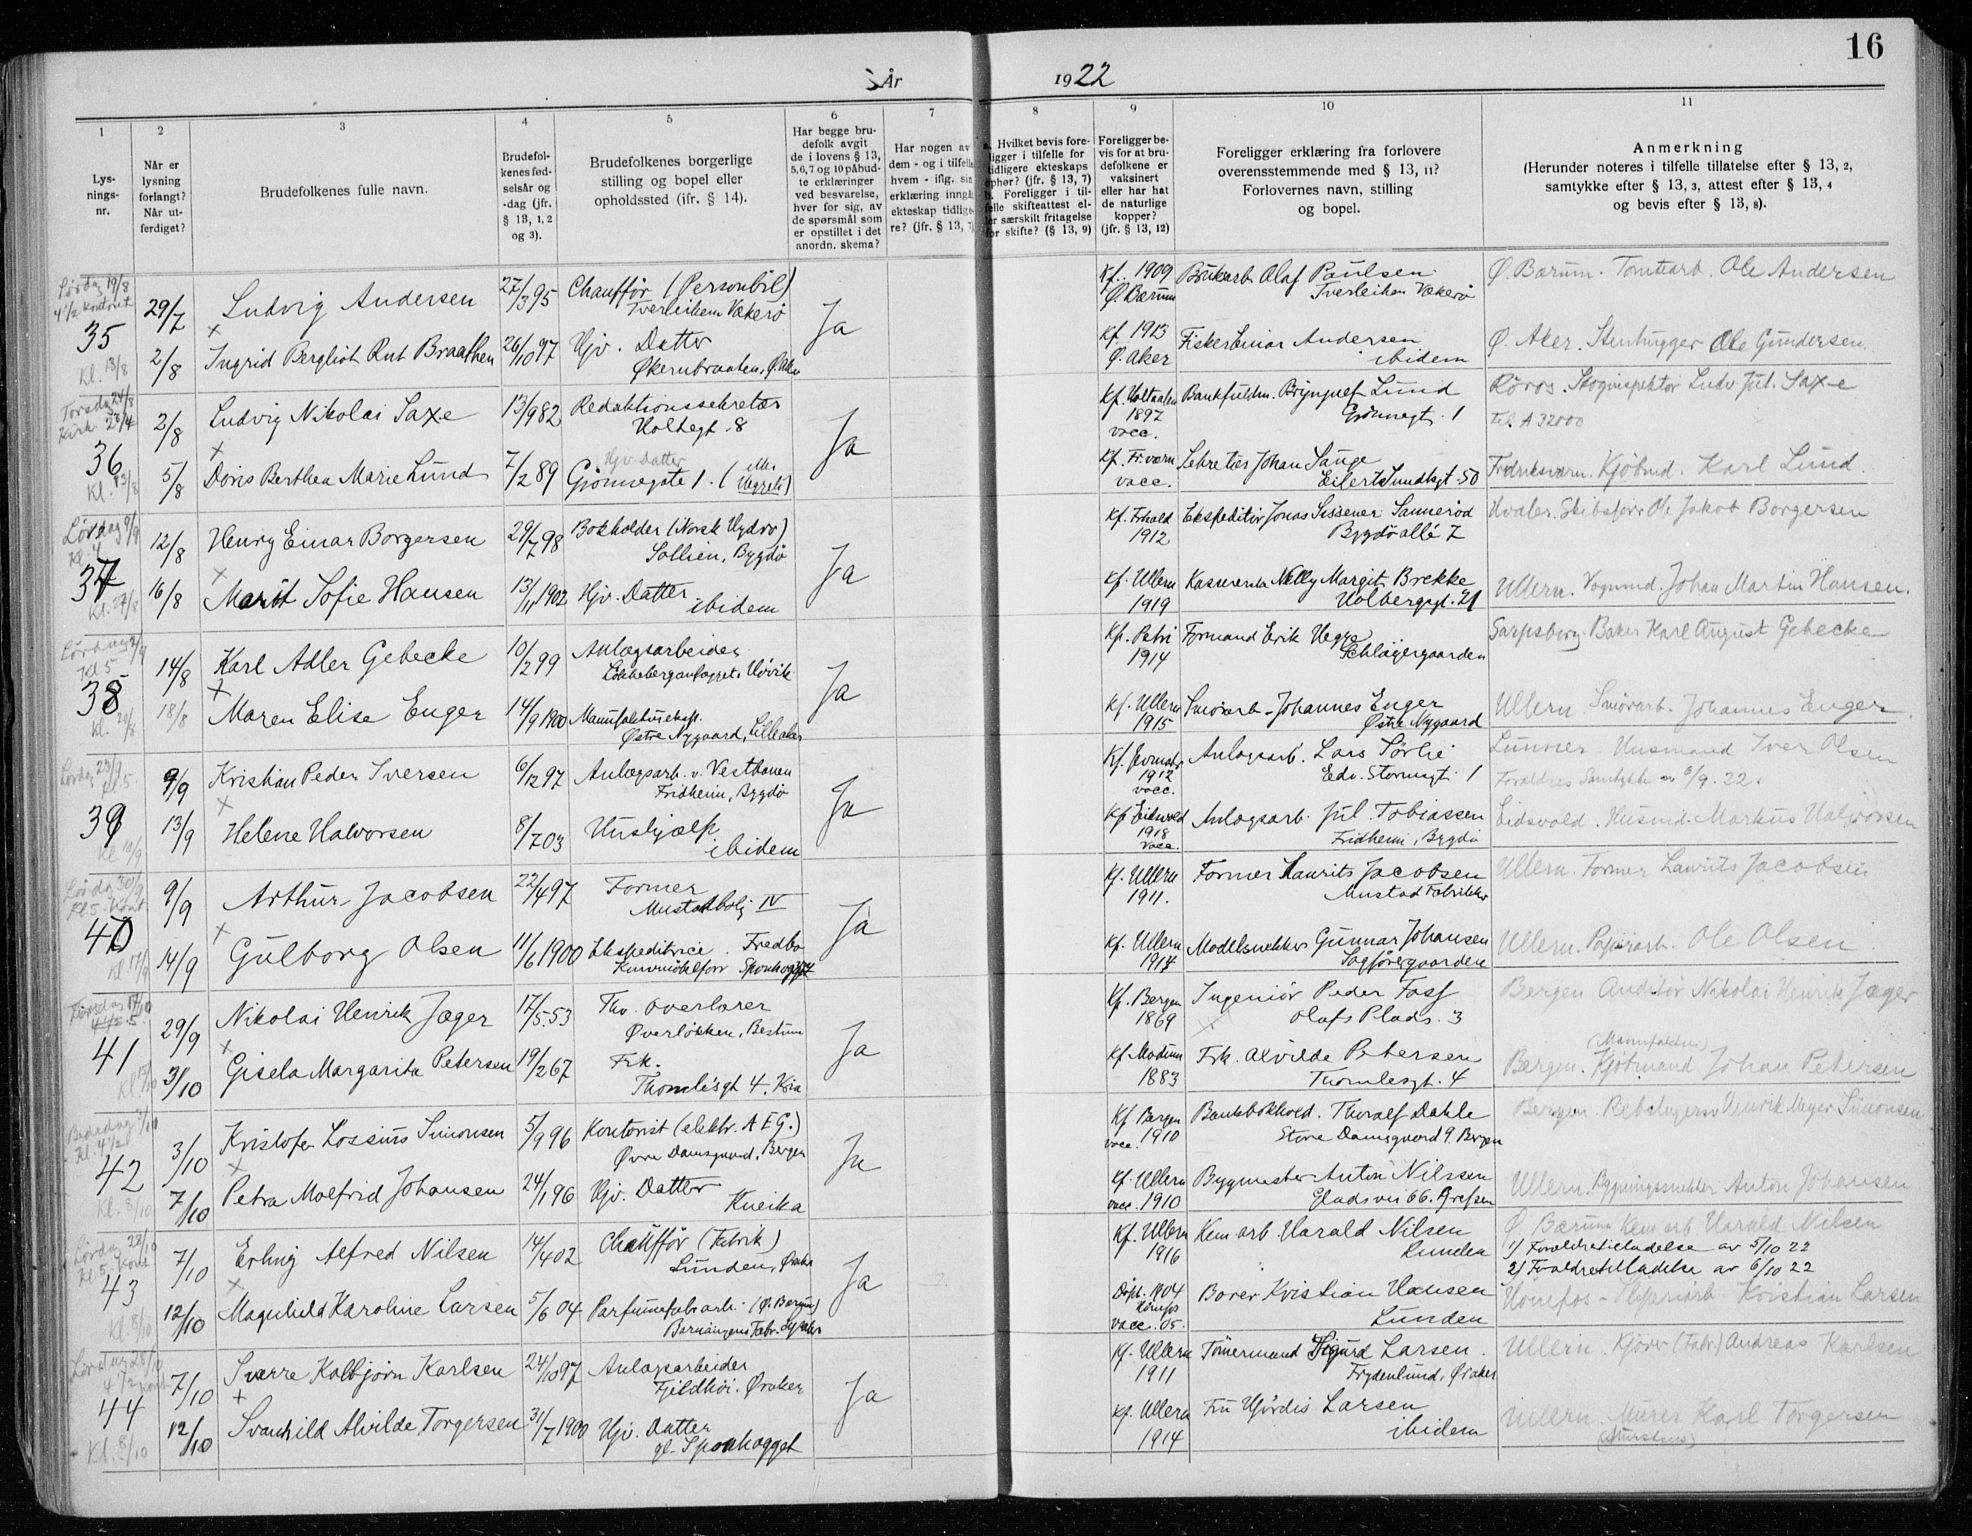 16
År 1922
1
Lys-
nings-
nr.
2
Når er
lysning
forlangt?
Når ut-
ferdiget?
3
Brudefolkenes fulle navn.
4
Brudefol-
kenes fød-
selsår og
-dag (jfr.
§ 13, 1, 2
og 3).
5
Brudefolkenes borgerlige
stilling og bopel eller
opholdssted (jfr. § 14).
6
Har begge bru-
defolk avgit
de i lovens § 13,
5, 6, 7 og 10 påbud-
te erklæringer
ved besvarelse,
hver for sig, av
de spørsmål som
er opstillet i det
anordn. skema?
7
Har nogen av
dem - og i tilfelle
hvem - iflg. sin
erklæring inngåt
ekteskap tidlige-
re? (jfr. § 13, 7)
8
a. Hvilket bevis fore-
ligger i tilfelle for
tidligere ekteskaps
ophør? (jfr. § 13, 7)
b. Foreligger i til-
felle skifteattest el-
ler særskilt fritagelse
for skifte? (§ 13, 9)
9
Foreligger be-
vis for at bru-
defolkene er
vaksinert
eller har hat
de naturlige
kopper?
(jfr. § 13, 12)
10
Foreligger erklæring fra forlovere
overensstemmende med § 13, 11?
Forlovernes navn, stilling
og bopel.
11
Anmerkning
(Herunder noteres i tilfelle tillatelse efter § 13, 2,
samtykke efter § 13, 3, attest efter § 13, 4
og bevis efter § 13, 8).
Lørdag 19/8
4 1/2 kontoret
35
29/7 Ludvig Andersen 27/3 95 Chauffør (Personbil) Ja Kf. 1909 Olaf Paulsen Ø. Bærum. Tomtearb. Ole Andersen
Vækerø Ø. Bærum Vækerø
Kl. 13/8 2/8 Ingrid Bergliot Rut Braathen 26/10 97 Hjv. Datter Kf. 1913 Fisker Einar Andersen Ø. Aker. Stenhugger Ole Gundersen
Økernbraaten, Ø. Aker Ø. Aker ibidem
Torsdag 24/8
36
2/8 Ludvig Nikolai Saxe 13/9 82 Redaktionssekretær Ja Kf. Holtaalen Bankfuldm. Brynjulf Lund Røros. Skoginspektør Ludv. Jul. Saxe
Holtegt. 8 1897 vacc. Grønnegt. 1 tel. A 32000
Kl. 13/8 5/8 Doris Berthea Marie Lund 7/2 89 Hjv. Datter Kf. Fr.værn Sekretær Johan Lange Fredriksværn. Kjøbmd. Karl Lund
Grønnegate 1. vacc. Eilert Sundtsgt. 50
Lørdag 9/9
37
12/8 Henry Einar Borgersen 29/7 98 Bokholder (Norsk Hydro) Ja Kf. Frhald Ekspeditør Jonas Sannerød Hvaler. Skibsfører Ole Jakob Borgersen
Bygdø 1912 Bygdø allé 7
Kl. 27/8 16/8 Marit Sofie Hansen 13/11 1902 Hjv. Datter Kf. Ullern Nelly Margit Brekke Ullern. Vognmd. Johan Martin Hansen.
ibidem 1919 Holbergsgt. 21
Kl 5
38
14/8 Karl Adler Gebecke 10/2 99 Anlægsarbeider Ja Kf. Petri Formand Erik Hegge Sarpsborg. Baker Karl August Gebecke
1914 Schlägergaarden
Kl. 20/8 18/8 Maren Elise Enger 14/9 1900 Manufaktureksp. Kf. Ullern Smørarb. Johannes Enger Ullern. Smørarb. Johannes Enger
Østre Nygaard, Lilleaker 1915 Østre Nygaard
Lørdag 23/9 Kl 5.
39
9/9 Kristian Peder Iversen 6/12 97 Anlægsarb. v. Vestbanen Ja Kf. Jevnaker Anlægsarb. Lars Sørlie Lunner Husmand Iver Olsen
Fridheim, Bygdø 1912 vacc. Edv. Stormsgt. 1 Forældres Samtykke av 6/9. 22.
Kl 10/9 13/9 Helene Halvorsen 8/7 03 Hushjælp Kf Eidsvold Anlægsarb. Jul. Tobiassen Eidsvold. Husmd. Markus Halvorsen
ibidem 1918 vacc. Fridheim, Bygdø
Lørdag 30/9
Kl 5. Kont
40
9/9 Arthur Jacobsen 22/4 97 Former Ja Kf. Ullern Former Laurits Jacobsen Ullern. Former Laurits Jacobsen
Mustadbolig IV 1911. Mustad Fabrikker
Kl 17/9 14/9 Gulborg Olsen 11/6 1900 Ekspeditrice Kf. Ullern Modelsnekker Gunnar Johansen Ullern. Papirarb. Ole Olsen
Fredbo 1914 Sagførergaarden
41
29/9 Nikolai Henrik Jæger 17/5 53 Fhv. overlærer Ja Kf. Bergen Ingeniør Peder Foss Bergen Auditør Nikolai Henrik Jæger
Øverløkken, Bestum 1869 Olafs Plads. 3
Kl 15/10 3/10 Gisela Margarita Petersen 19/2 67 Frk. Kf Modum Frk. Alvilde Petersen Bergen. Kjøbmand (Manufaktur) Johan Petersen
Thomlesgt 4. Kria 1883 Thomlesgt. 4
42
3/10 Kristofer Lossius Simonsen 5/9 96 Kontorist (elektr. A E G.) Ja Kf Bergen Bankbokhold. Thoralf Dahle Bergen. Rebslager Henrik Meyer Simonsen
Øvre Damsgaard, Bergen vacc. 1910 Store Damsgaard 9. Bergen
Kl. 8/10 7/10 Petra Molfrid Johansen 24/1 96 Hjv. Datter Kf. Ullern Byggmester Anton Nilssen Ullern. Bygningssnekker Anton Johansen
Kneika vacc. 1910 Gladsvei 66. Grefsen
Lørdag 28/10
Kl 5. Kont
43
7/10 Erling Alfred Nilsen 14/4 02 Chauffør (Fabrik) Ja Kf. Ullern Kem. arb. Harald Nilsen Ø Bærum Kem arb. Harald Nilsen
Lunden, Øraker 1916 Lunden 1) Forældretilladelse av 5/10 22
2) Forældretilladelse av 6/10 22
Kl. 8/10 12/10 Magnhild Karoline Larsen 5/6 04 Parfumefabr.arb. (Ø. Bærum) Døpt. 1904 Borer Kristian Hansen Hønefos - Papirarb. Kristian Larsen
Barnängens Fabr. Hønefos vacc. 05. Lunden
Lørdag 28/10
44
7/10 Sverre Kolbjørn Karlsen 24/10 97 Anlægsarbeider Ja Kf. Ullern Tømmermand Sigurd Larsen. Ullern. Kjører (Fabr.) Andreas Karlsen
Fjeldhøi. Øraker 1911 Frydenlund, Øraker
Kl. 8/10 12/10 Svanhild Alvilde Torgersen 31/7 1900 Hjv. Datter Kf. Ullern Fru Hjørdis Larsen Ullern. Murer Karl Torgersen
gl. Sponhogget 1914 ibidem